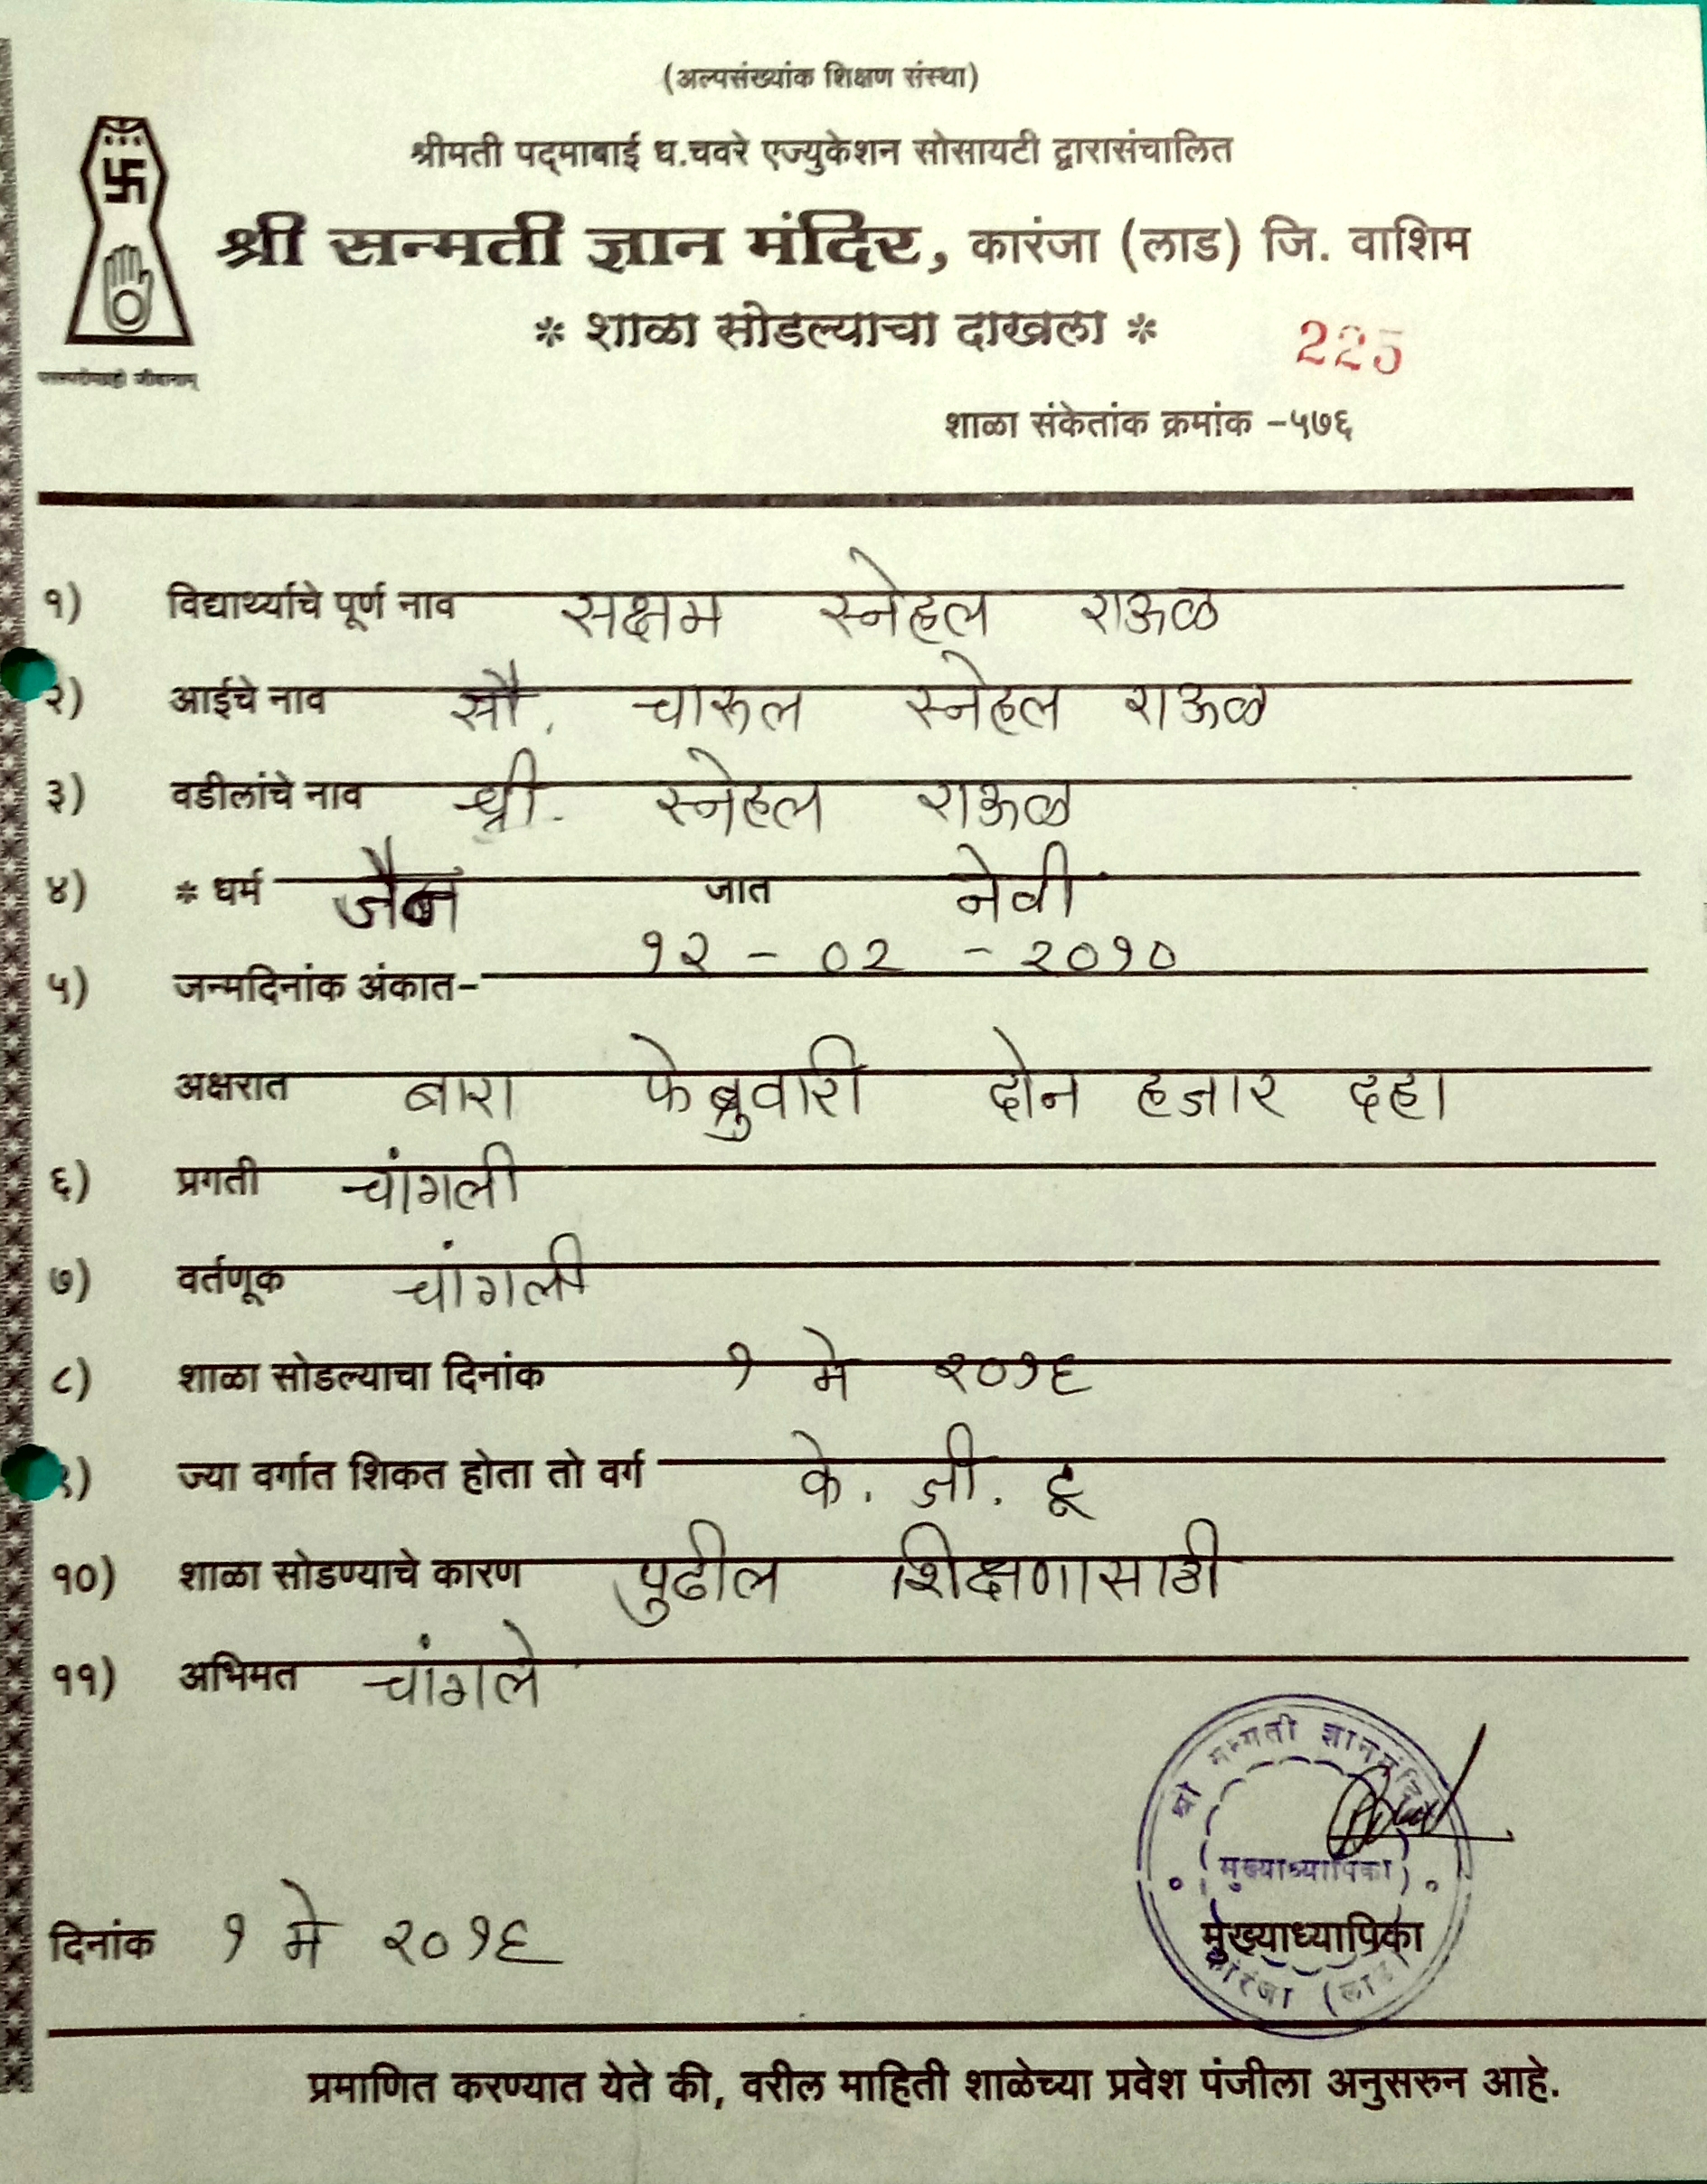 (अल्पसंख्यांक शिक्षण संस्था)
श्रीमती पद्माबाई ध.चवरे एज्युकेशन सोसायटी द्वारासंचालित
श्री सन्मती ज्ञान मंदिर, कारंजा (लाड) जि. वाशिम
* शाळा सोडल्याचा दाखला * 225
परस्परोपग्रहो जीवानाम्
शाळा संकेतांक क्रमांक -५७६
१) विद्यार्थ्याचे पूर्ण नाव सक्षम स्नेहल राऊळ
२) आईचे नाव सौ. चारूल स्नेहल राऊळ
३) वडीलांचे नाव श्री. स्नेहल राऊळ
४) * धर्म जैन जात नेवी
५) जन्मदिनांक अंकात- १२ - ०२ - २०१०
अक्षरात बारा फेब्रुवारी दोन हजार दहा
६) प्रगती चांगली
७) वर्तणूक चांगली
८) शाळा सोडल्याचा दिनांक १ मे २०१६
९) ज्या वर्गात शिकत होता तो वर्ग के. जी. टू
१०) शाळा सोडण्याचे कारण पुढील शिक्षणासाठी
११) अभिमत चांगले
श्री सन्मती ज्ञानमंदिर
मुख्याध्यापिका
दिनांक १ मे २०१६ मुख्याध्यापिका
कारंजा (लाड)
प्रमाणित करण्यात येते की, वरील माहिती शाळेच्या प्रवेश पंजीला अनुसरुन आहे.